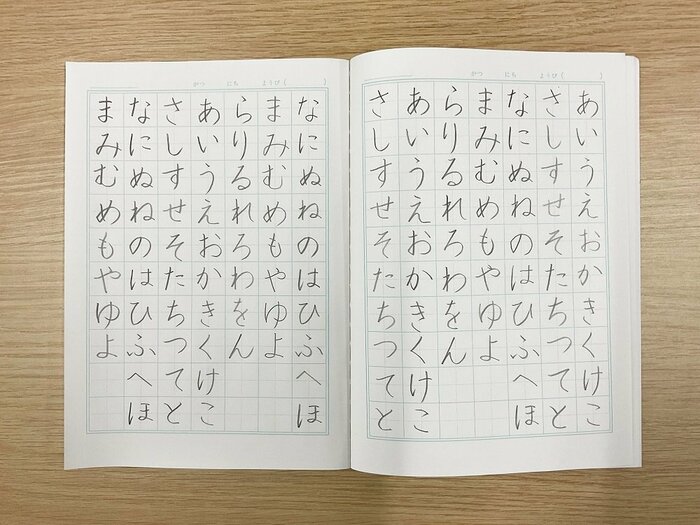 がつ にち ようび( )
あいうえおかきくけこ
さしすせそたちつてと
なにぬねのはひふへほ
まみむめもやゆよ
らりるれろわをん
あいうえおかきくけこ
さしすせそたちつてと
がつ にち ようび( )
なにぬねのはひふへほ
まみむめもやゆよ
らりるれろわをん
あいうえおかきくけこ
さしすせそたちつてと
なにぬねのはひふへほ
まみむめもやゆよ